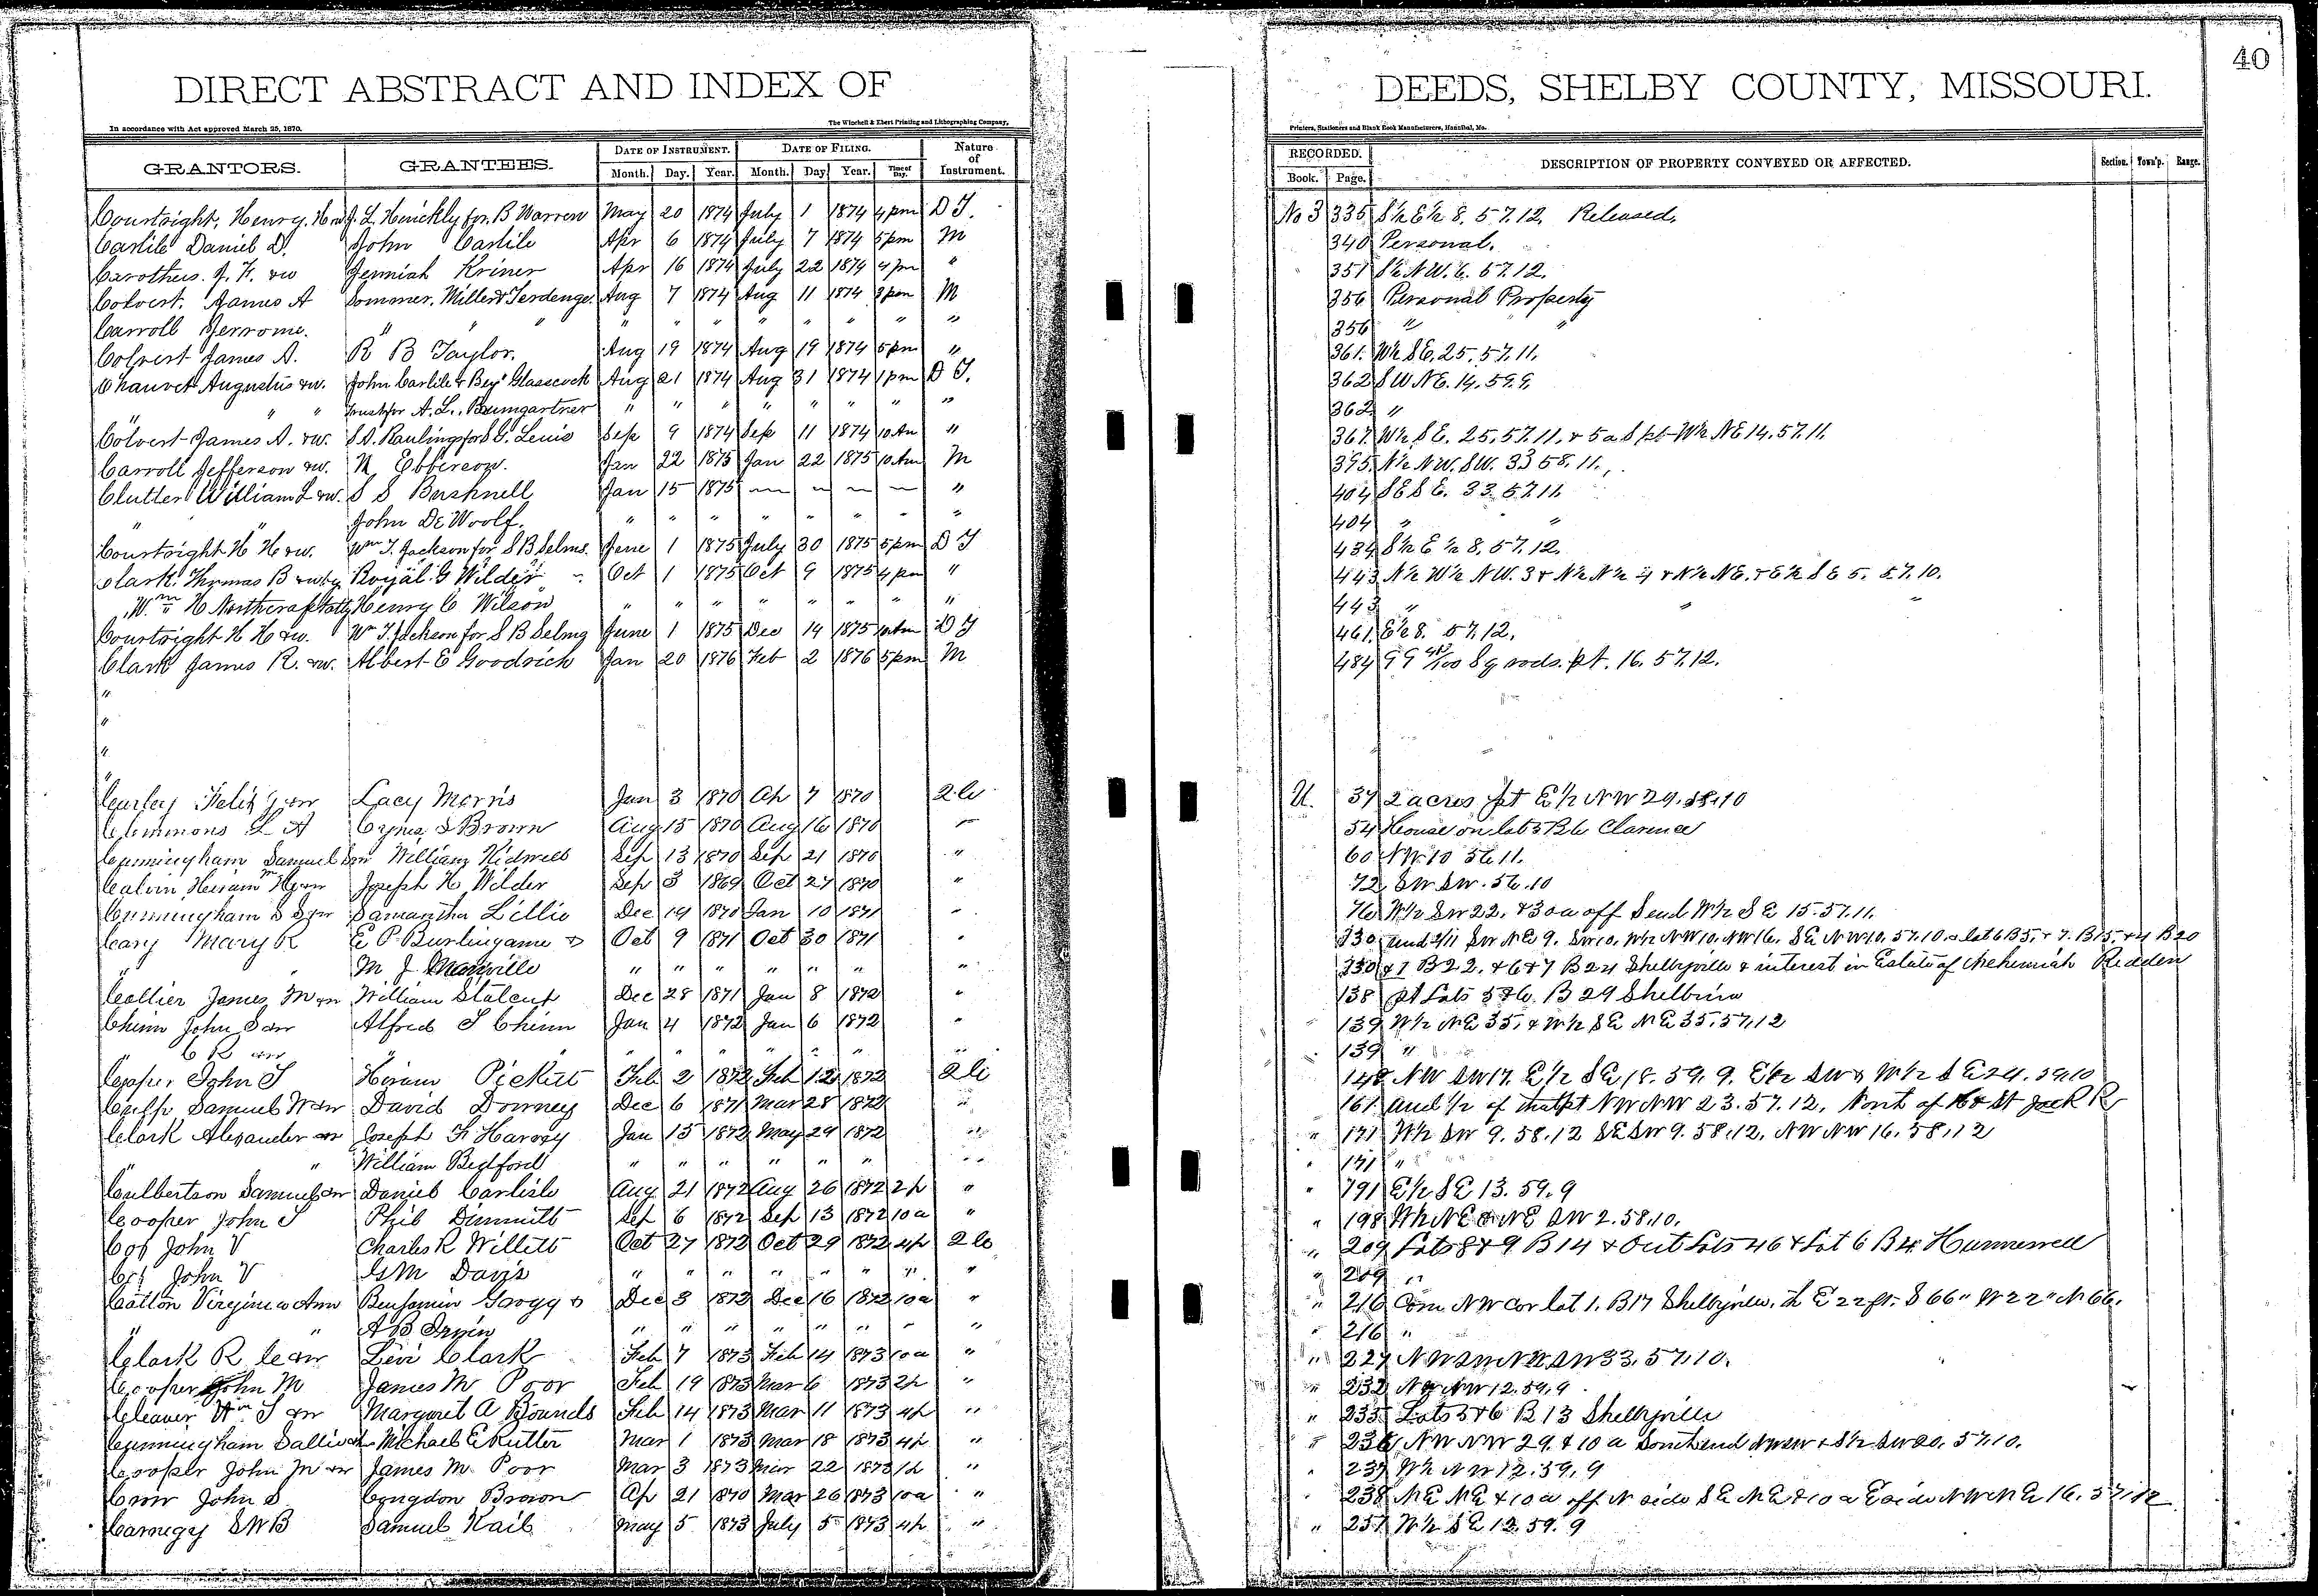 40
DIRECT ABSTRACT AND INDEX OF DEEDS, SHELBY COUNTY, MISSOURI.
In accordance with Act approved March 25, 1870. The Winchell & Ebert Printing and Lithographing Company, Printers, Stationers and Blank Book Manufacturers, Hannibal, Mo.
GRANTORS. GRANTEES. DATE OF INSTRUMENT. DATE OF FILING. Nature of Instrument. RECORDED. DESCRIPTION OF PROPERTY CONVEYED OR AFFECTED. Section. Town'p. Range.
Month. Day. Year. Month. Day Year. Time of Day. Book. Page.
Courtright, Henry. H &w J. L. Hinickly for. B Warren May 20 1874 July 1 1874 4 pm D T. No 3 335 S½ E½ 8. 57.12. Released.
Carlile Daniel D. John Carlile Apr 6 1874 July 7 1874 5 pm M 340 Personal.
Carothers. J. F. &w Jemiah Kriner Apr 16 1874 July 22 1874 4 pm " 351 S½ N W. 6. 57.12.
Colvert. James A Sommer, Miller & Terdenge. Aug 7 1874 Aug 11 1874 3 pm M 356 Personal Property
Carroll Jerrome. " " " " " " " " " " " 356 " "
Colvert James A. R B Taylor. Aug 19 1874 Aug 19 1874 5 pm " 361. W½ SE. 25. 57.11.
Chauvet Augustus &w. John Carlile & Benj. Glasscock Aug 21 1874 Aug 31 1874 1 pm D T. 362 S W N E. 14. 59.9.
" " " Trust for A. L. Baumgartner " " " " " " " " 362 "
Colvert James A. &w. S. A. Raulings for S G. Lewis Sep 9 1874 Sep 11 1874 10 Am " 367. W½ S E. 25. 57.11. & 5 a S pt W½ NE 14. 57.11.
Carroll Jefferson &w. N Ebberson. Jan 22 1875 Jan 22 1875 10 Am M 395. N½ N W. S W. 33 58. 11.
Clutter William L &w. S S Bushnell Jan 15 1875 — — — — " 404 S E S E. 33. 57.11.
" " John De Woolf. " " " " " " " " 404 " "
Courtright H H &w. Wm T. Jackson for S B Selms. June 1 1875 July 30 1875 5 pm D T 434 S½ E ½ 8. 57.12.
Clark. Thomas B &w by Royal G Wilder Oct 1 1875 Oct 9 1875 4 pm " 443 N½ W½ N W. 3 & N½ N½ 4 & N½ N E. & E½ S E 5. 57.10.
Wm H Northcraft atty Henry C Wilson " " " " " " " " 443 " " "
Courtright H H &w. Wm T. Jackson for S B Selms June 1 1875 Dec 14 1875 10 Am D T 461. E½ 8. 57.12.
Clark James R. &w. Albert E Goodrich Jan 20 1876 Feb 2 1876 5 pm M 484 99 48/100 Sq rods. pt. 16. 57.12.
"
"
"
"
Curley Felix G &w Lacy Morris Jan 3 1870 Ap 7 1870 2 C U. 37 2 acres pt E½ N W 29. 58.10
Clemmons L A Cyrus S Brown Aug 15 1870 Aug 16 1870 " 54 House on lot 5 B 6 Clarence
Cunningham Samuel &w William Kidwell Sep 13 1870 Sep 21 1870 " 60 N W 10 56.11.
Calvin Hiram M &w Joseph H Wilder Sep 3 1869 Oct 27 1870 " 72 SW SW. 56.10
Cunningham S S &w Samantha Lillie Dec 19 1870 Jan 10 1871 " 76 W½ SW 22. & 30 a off S end W½ S E 15. 57.11.
Cary Mary R E P Burlingame & Oct 9 1871 Oct 30 1871 " 130 und 2/11 SW N E 9. SW 10. W½ NW 10. NW 16. SE NW 10. 57.10. & lot 6 B 5. & 7. B 15. & 4 B 20
" " M J Manville " " " " " " " 130 & 1 B 22. & 6 & 7 B 24 Shelbyville & interest in Estate of Nehemiah Redden
Collier James M &w William Stalcup Dec 28 1871 Jan 8 1872 " 138 pt Lots 5 & 6. B 29 Shelbina
Chinn John S &w Alfred S Chinn Jan 4 1872 Jan 6 1872 " 139 W½ N E 35. & W½ S E N E 35. 57.12
" C R &w " " " " " " " " 139 "
Cooper John S Hiram Pickett Feb 2 1872 Feb 12 1872 2 C 148 NW SW 17. E½ S E 18. 59. 9. E½ SW & W½ S E 24. 59.10
Cupp Samuel W &w David Downey Dec 6 1871 Mar 28 1872 " 161 und ½ of that pt N W N W 23. 57. 12. North of H & St Jo R R
Clark Alexander &w Joseph F Harvey Jan 15 1872 May 29 1872 " " 171 W½ SW 9. 58. 12 SE SW 9. 58.12. NW NW 16. 58.12
" " William Bedford " " " " " " " " 171 "
Culbertson Samuel &w Daniel Carlisle Aug 21 1872 Aug 26 1872 2 p " " 191 E½ S E 13. 59. 9
Cooper John S Phil Dimmitt Sep 6 1872 Sep 13 1872 10 a " " 198 W½ N E & N E SW 2. 58.10.
Cox John V Charles K Willett Oct 27 1872 Oct 29 1872 4 p 2 C " 209 Lots 8 & 9 B 14 & Out Lots 46 & Lot 6 B 4 Hunnewell
Cox John V G M Davis " " " " " " " " " 209 "
Catton Virginia Ann Benjamin Gregg & Dec 3 1872 Dec 16 1872 10 a " " 216 Com NW cor lot 1. B 17 Shelbyville. th E 22 ft. S 66" W 22" N 66.
" " A B Irwin " " " " " " " " " 216 "
Clark R C &w Levi Clark Feb 7 1873 Feb 14 1873 10 a " " 227 N W SW N W SW 33. 57.10.
Cooper John M James M Poor Feb 19 1873 Mar 6 1873 2 p " " 232 N E N W 12. 59. 9
Cleaver Wm S &w Margaret A Bounds Feb 14 1873 Mar 11 1873 4 p " " 235 Lots 5 & 6 B 13 Shelbyville
Cunningham Sallie Michael E Rutter Mar 1 1873 Mar 18 1873 4 p " " 236 N W N W 29. & 10 a South end SW SW & S½ SW 20. 57.10.
Cooper John M &w James M Poor Mar 3 1873 Mar 22 1873 1 p " " 237 W½ N W 12. 59. 9
Crow John S Congdon Brown Ap 21 1870 Mar 26 1873 10 a " " 238 N E N E & 10 a off N side S E N E & 10 a E side N W N E 16. 57.12
Carnegy S W B Samuel Kail May 5 1873 July 5 1873 4 p " " 257 W½ S E 12. 59. 9